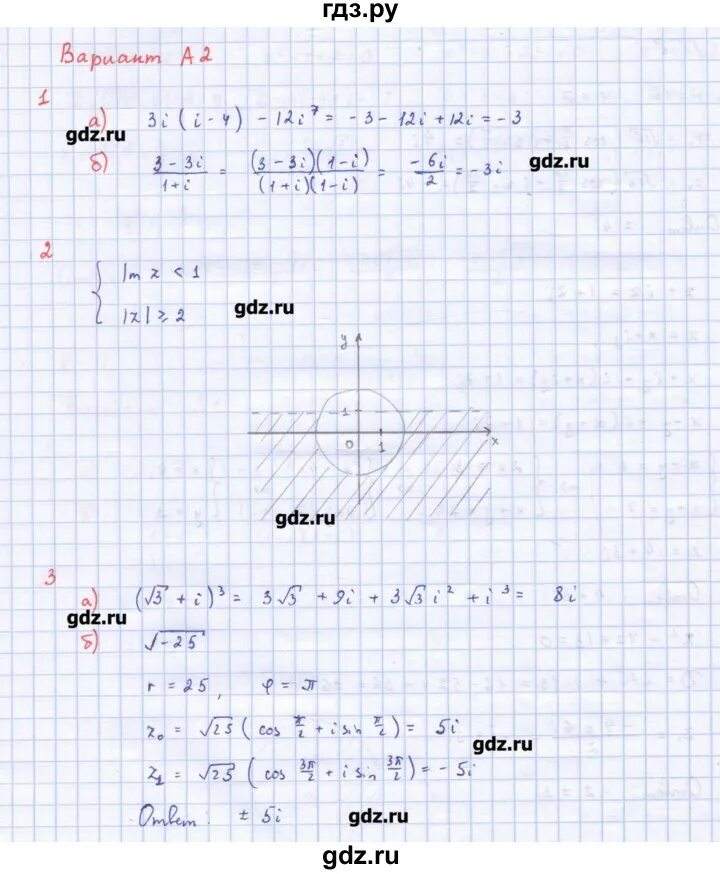 гдз.ру
Вариант А2
1
а) 3i (i - 4) - 12i⁷ = - 3 - 12i + 12i = - 3
gdz.ru
б) (3 - 3i)/(1 + i) = ((3 - 3i)(1 - i))/((1 + i)(1 - i)) = (-6i)/2 = - 3i
gdz.ru
2
{ Im z < 1
|z| ≥ 2
gdz.ru
y
1
0 1 x
gdz.ru
3
а) (√3 + i)³ = 3√3 + 9i + 3√3 i² + i³ = 8i
gdz.ru
б) √-25
r = 25, φ = π
z₀ = √25 (cos π/2 + i sin π/2) = 5i
gdz.ru
z₁ = √25 (cos 3π/2 + i sin 3π/2) = - 5i
Ответ: ± 5i
gdz.ru
gdz.ru